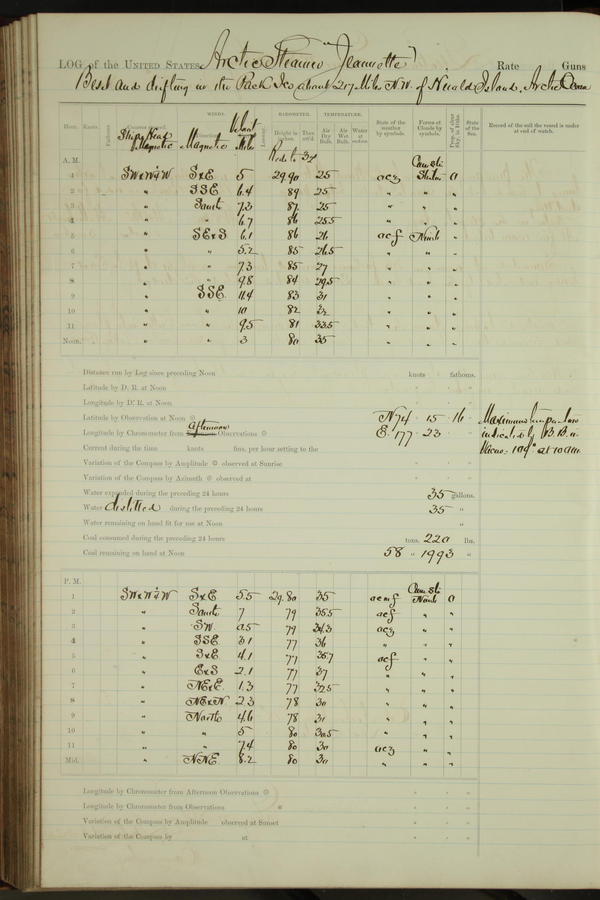 LOG of the UNITED STATES Arctic Steamer "Jeannette" Rate Guns
Beset and drifting in the Pack Ice about 217 Miles N.W. of Herald Island, Arctic Ocean
Hour. Knots. Fathoms Ship's Head Magnetic WINDS. Magnetic Leeway BAROMETER. Height in inches. Ther. att'd. TEMPERATURE. Air Dry Bulb. Air Wet Bulb. Water at surface. State of the weather by symbols. Forms of Clouds by symbols. State of the Sea. Record of the sail the vessel is under at end of watch.
A. M.
1 SWxW¼W SxE 5 29.90 25 acz 0
2 " SSE 6.4 89 25 " " "
3 " South 7.3 87 25 " " "
4 " " 6.7 86 25.5 " " "
5 " SExS 6.1 86 26 acf Nimb "
6 " " 5.2 85 26.5 " " "
7 " " 7.3 85 27 " " "
8 " " 9.8 84 29.5 " " "
9 " SSE 11.4 83 31 " " "
10 " " 10 82 32 " " "
11 " " 9.5 81 33.5 " " "
Noon. " " 3 80 35 " " "
Distance run by Log since preceding Noon knots fathoms.
Latitude by D. R. at Noon
Longitude by D. R. at Noon
Latitude by Observation at Noon N 74 15 16
Longitude by Chronometer from afternoon Observations E. 177 23
Maximum temperature
indicated by B.B. in
Vacuo = 109° at 10 am
Current during the time knots fms. per hour setting to the
Variation of the Compass by Amplitude observed at Sunrise
Variation of the Compass by Azimuth observed at
Water expended during the preceding 24 hours 35 gallons.
Water distilled during the preceding 24 hours 35 "
Water remaining on hand fit for use at Noon "
Coal consumed during the preceding 24 hours tons. 220 lbs.
Coal remaining on hand at Noon 58 " 1993 "
P. M.
1 SWxW¼W SxE 5.5 29.80 35 Nimb 0
2 " South 7 79 35.5 acf " "
3 " SW 0.5 79 34.3 acz " "
4 " SSE 3.1 77 36 " " "
5 " SxE 4.1 77 35.7 acf " "
6 " ExS 2.1 77 37 " " "
7 " NExE 1.3 77 32.5 " " "
8 " NExN 2.3 78 30 " " "
9 " North 4.6 78 31 " " "
10 " " 5 80 30.5 " " "
11 " " 7.4 80 30 acz " "
Mid. " NNE 8.2 80 30 " " "
Longitude by Chronometer from Afternoon Observations
Longitude by Chronometer from Observations
Variation of the Compass by Amplitude observed at Sunset
Variation of the Compass by at